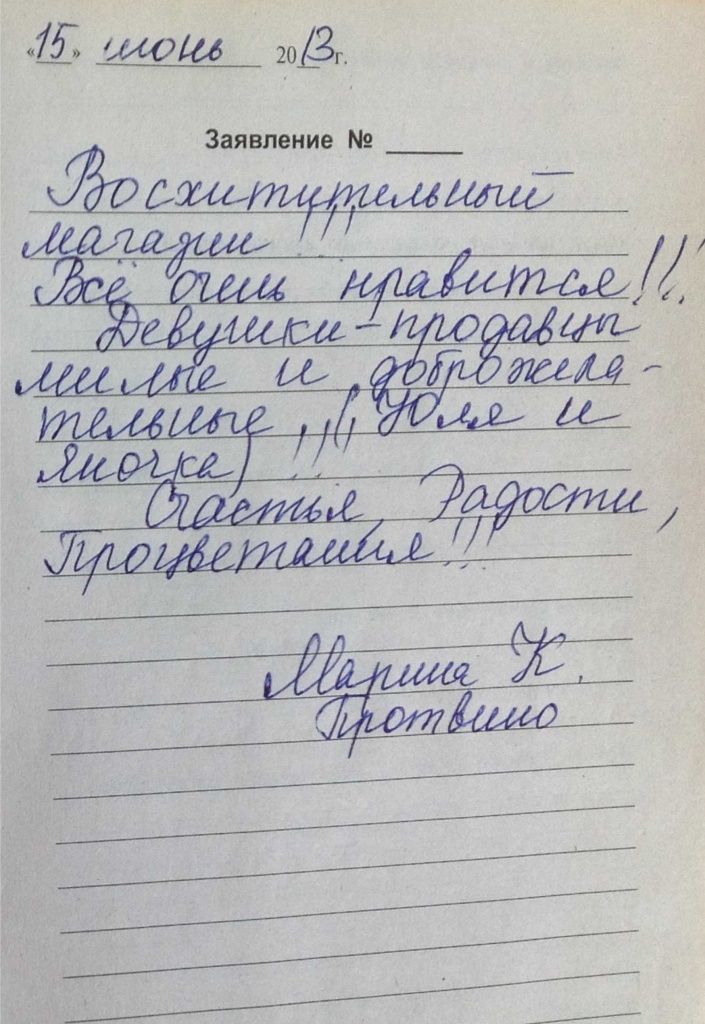 «15» июнь 2013г.
Заявление № ____
Восхитительный
магазин !!!
Всё очень нравится!!!
Девушки-продавцы
милые и доброжела-
тельные !!! (Юля и
Яночка) !!!
Счастья, Радости,
Процветания!!!
Марина К.
Протвино